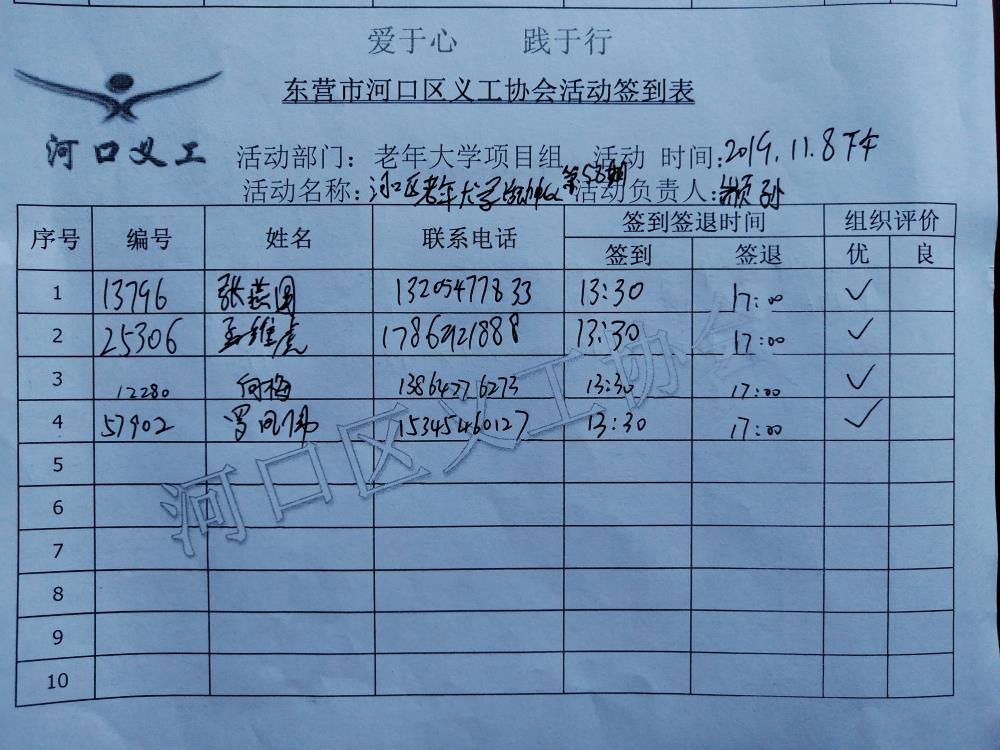 爱于心 践于行
东营市河口区义工协会活动签到表
河口义工
活动部门：老年大学项目组 活动 时间：2019.11.8下午
活动名称：河口区老年大学 第58期 活动负责人：
序号 编号 姓名 联系电话 签到签退时间 组织评价
签到 签退 优 良
1 13796 张燕国 13205477833 13:30 17:00 ✓
2 25306 孟维虎 17862921888 13:30 17:00 ✓
3 12280 向梅 13864776273 13:30 17:00 ✓
4 57902 罗凤伟 15345460127 13:30 17:00 ✓
5
6
7
8
9
10
河口区义工协会